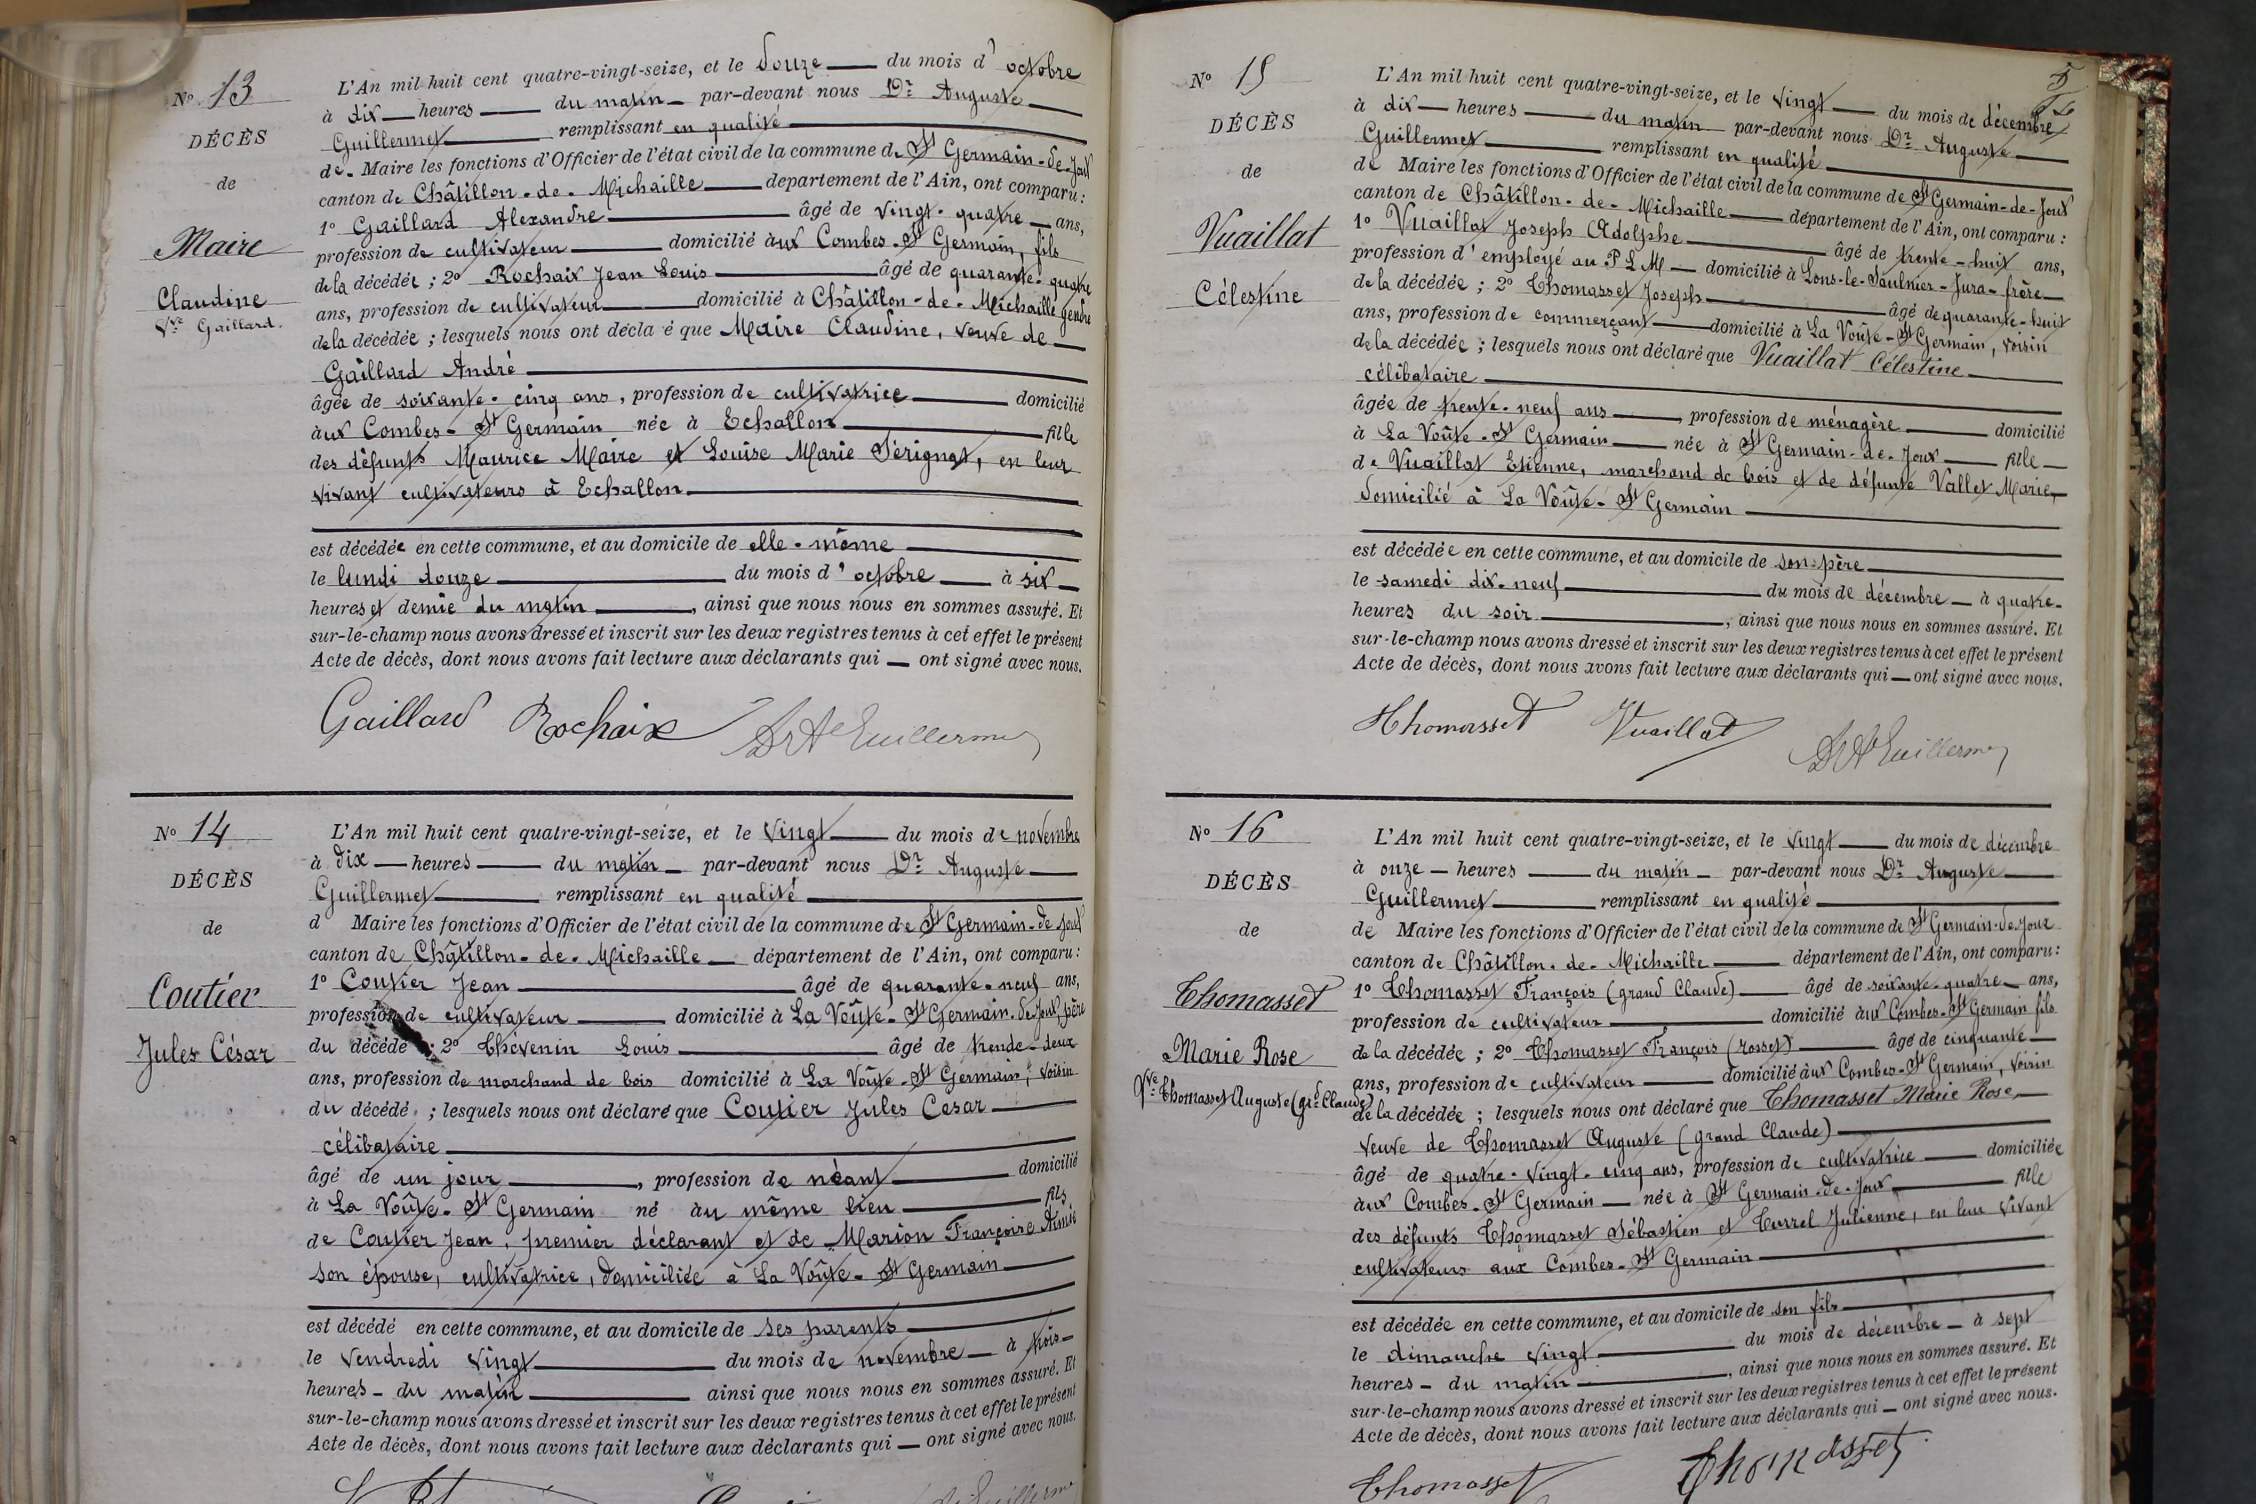 N° 13
DÉCÈS
de
Maire
Claudine
Vve Gaillard.
L'An mil huit cent quatre-vingt-seize, et le douze du mois d' octobre
à dix heures du matin par-devant nous Dr Auguste
Guillermet remplissant en qualité
de Maire les fonctions d'Officier de l'état civil de la commune de St Germain-de-Joux
canton de Châtillon-de-Michaille departement de l'Ain, ont comparu :
1° Gaillard Alexandre âgé de vingt-quatre ans,
profession de cultivateur domicilié àux Combes-St Germain, fils
de la décédée ; 2° Rochaix Jean Louis âgé de quarante-quatre
ans, profession de cultivateur domicilié à Châtillon-de-Michaille gendre
de la décédée ; lesquels nous ont décla é que Maire Claudine, veuve de
Gaillard André
âgée de soixante-cinq ans, profession de cultivatrice domicilié
àux Combes-St Germain née à Echallon fille
des défunts Maurice Maire et Louise Marie Sérignat, en leur
vivant cultivateurs à Echallon
est décédée en cette commune, et au domicile de elle-même
le lundi douze du mois d' octobre à six
heures et demie du matin, ainsi que nous nous en sommes assuré. Et
sur-le-champ nous avons dressé et inscrit sur les deux registres tenus à cet effet le présent
Acte de décès, dont nous avons fait lecture aux déclarants qui ont signé avec nous.
Gaillard Rochaix Dr Ate Guillermet
N° 14
DÉCÈS
de
Coutier
Jules César
L'An mil huit cent quatre-vingt-seize, et le vingt du mois de novembre
à dix heures du matin par-devant nous Dr Auguste
Guillermet remplissant en qualité
d Maire les fonctions d'Officier de l'état civil de la commune de St Germain-de-Joux
canton de Châtillon-de-Michaille département de l'Ain, ont comparu :
1° Coutier Jean âgé de quarante-neuf ans,
profession de cultivateur domicilié à La Voûte-St Germain-de-Joux père
du décédé ; 2° Thévenin Louis âgé de trende-deux
ans, profession de marchand de bois domicilié à La Voûte-St Germain, voisin
du décédé ; lesquels nous ont déclaré que Coutier Jules César
célibataire
âgé de un jour, profession de néant domicilié
à La Voûte-St Germain né àu même lieu fils
de Coutier Jean, premier déclarant et de Marion Françoise Aimée
son épouse, cultivatrice, domiciliée à La Voûte-St Germain
est décédé en cette commune, et au domicile de ses parents
le vendredi vingt du mois de novembre à trois
heures du matin ainsi que nous nous en sommes assuré. Et
sur-le-champ nous avons dressé et inscrit sur les deux registres tenus à cet effet le présent
Acte de décès, dont nous avons fait lecture aux déclarants qui ont signé avec nous.
N° 15
DÉCÈS
de
Vuaillat
Célestine
L'An mil huit cent quatre-vingt-seize, et le vingt du mois de décembre
à dix heures du matin par-devant nous Dr Auguste
Guillermet remplissant en qualité
de Maire les fonctions d'Officier de l'état civil de la commune de St Germain-de-Joux
canton de Châtillon-de-Michaille département de l'Ain, ont comparu :
1° Vuaillat Joseph Adolphe âgé de trente-huit ans,
profession d' employé au P L M domicilié à Lons-le-Saulnier-Jura-frère
de la décédée ; 2° Thomasset Joseph âgé de quarante-huit
ans, profession de commerçant domicilié à La Voûte-St Germain, voisin
de la décédée ; lesquels nous ont déclaré que Vuaillat Célestine
célibataire
âgée de trente-neuf ans, profession de ménagère domicilié
à La Voûte-St Germain née à St Germain-de-Joux fille
de Vuaillat Etienne, marchand de bois et de défunte Vallet Marie,
domicilié à La Voûte-St Germain
est décédée en cette commune, et au domicile de son père
le samedi dix-neuf du mois de décembre à quatre
heures du soir, ainsi que nous nous en sommes assuré. Et
sur-le-champ nous avons dressé et inscrit sur les deux registres tenus à cet effet le présent
Acte de décès, dont nous avons fait lecture aux déclarants qui ont signé avec nous.
Thomasset Vuaillat Dr Ate Guillermet
N° 16
DÉCÈS
de
Thomasset
Marie Rose
Vve Thomasset Auguste (grd Claude)
L'An mil huit cent quatre-vingt-seize, et le vingt du mois de décembre
à onze heures du matin par-devant nous Dr Auguste
Guillermet remplissant en qualité
de Maire les fonctions d'Officier de l'état civil de la commune de St Germain-de-Joux
canton de Châtillon-de-Michaille département de l'Ain, ont comparu :
1° Thomasset François (grand Claude) âgé de soixante-quatre ans,
profession de cultivateur domicilié àux Combes-St Germain fils
de la décédée ; 2° Thomasset François (rosset) âgé de cinquante
ans, profession de cultivateur domicilié àux Combes-St Germain, voisin
de la décédée ; lesquels nous ont déclaré que Thomasset Marie Rose,
veuve de Thomasset Auguste (grand Claude)
âgé de quatre-vingt-cinq ans, profession de cultivatrice domiciliée
àux Combes-St Germain née à St Germain-de-Joux fille
des défunts Thomasset Sébastien et Turrel Julienne, en leur vivant
cultivateurs aux Combes-St Germain
est décédée en cette commune, et au domicile de son fils
le dimanche vingt du mois de décembre à sept
heures du matin, ainsi que nous nous en sommes assuré. Et
sur-le-champ nous avons dressé et inscrit sur les deux registres tenus à cet effet le présent
Acte de décès, dont nous avons fait lecture aux déclarants qui ont signé avec nous.
Thomasset Thomasset